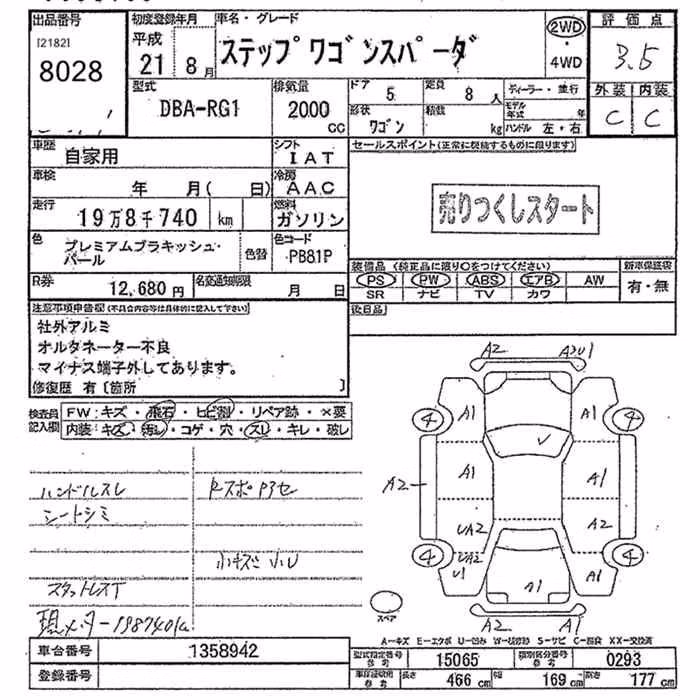 出品番号 初度登録年月 車名・グレード 評価点
[2182]
8028
平成
21年 8月
ステップワゴンスパーダ
2WD
・
4WD
3.5
型式 排気量 ドア 定員 ディーラー・並行
DBA-RG1 2000 CC 5 8人
モデル年式 年
形状 積載 外装 内装
ワゴン kg ハンドル 左・右 C C
車歴 シフト セールスポイント(正常に機能するものに限ります)
自家用 IAT
車検 冷房
年 月( 日) AAC
売りつくしスタート
走行 燃料
19万8千740 km ガソリン
色 色替 色コード
プレミアムブラキッシュ・
パール
PB81P
装備品 (純正品に限り○をつけてください) 新車保証書
PS PW ABS エアB AW 有・無
SR ナビ TV カワ
R券 名変通知期限
12,680円 月 日
後日品
注意事項申告欄(不具合内容等は具体的に記入して下さい)
社外アルミ
オルタネーター不良
マイナス端子外してあります。
修復歴 有〔箇所 〕
検査員記入欄
FW:キズ・飛石・ヒビ割・リペア跡・×要
内装:キズ・汚レ・コゲ・穴・スレ・キレ・破レ
ハンドルスレ
シートシミ
スタットレスT
小キズ 小U
A2 A2U1
4 A1 A1 4
A1 A1
A2
UA2 A2
4 UA2 U1 A1 A1 4
スペア
A2 A1
A-キズ E-エクボ U-凹み W-補修跡 S-サビ C-腐食 XX-交換済
車台番号 1358942
型式指定番号 参考 15065 類別区分番号 参考 0293
登録番号
車両積載用 参考 長さ 466cm 幅 169cm 高さ 177cm